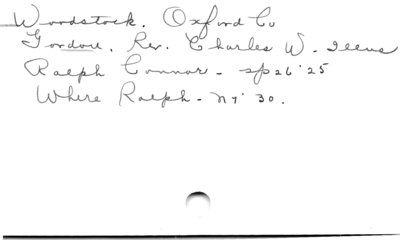 Woodstock. Oxford Co
Gordon, Rev. Charles W. - Illus
Ralph Connor - sp 26 '25
Where Ralph - my '30.